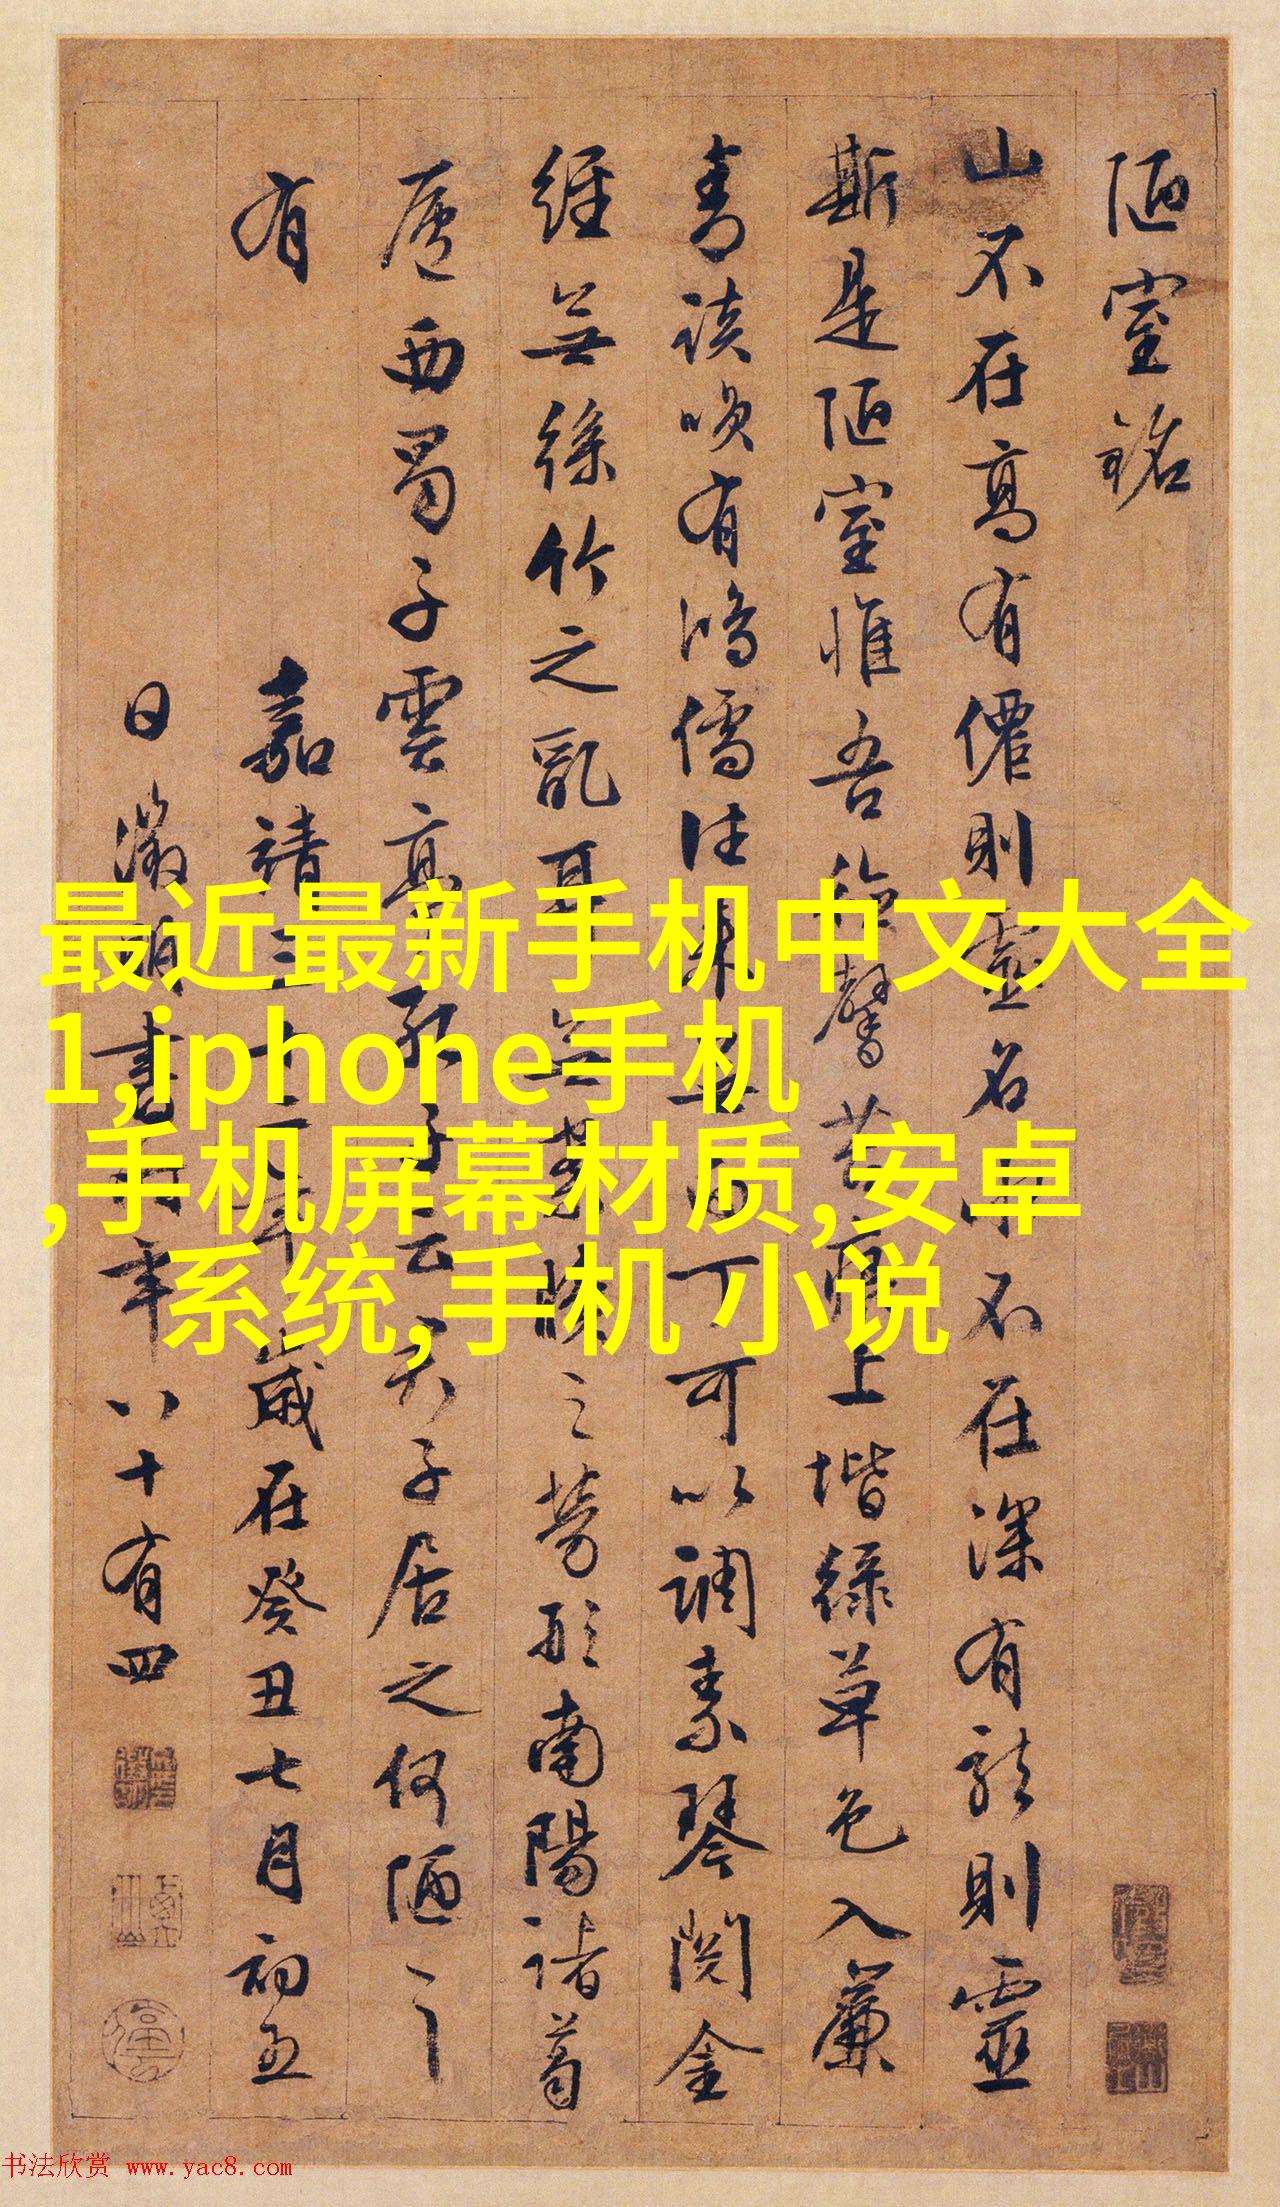 陋室銘
山不在高有僊則靈名水不在深有龍則靈
斯是陋室惟吾德馨苔痕上堦綠草色入簾
青談咲有鴻儒往來無白丁可以調素琴閱金
經無絲竹之亂耳無案牘之勞形南陽諸葛
廬西蜀子雲亭孔子云君子居之何陋之
有
嘉靖三十二年歲在癸丑七月初五
日徵明書時年八十有四
最近最新手机中文大全
1,iphone手机
,手机屏幕材质,安卓
系统,手机小说
书法欣赏 www.yac8.com